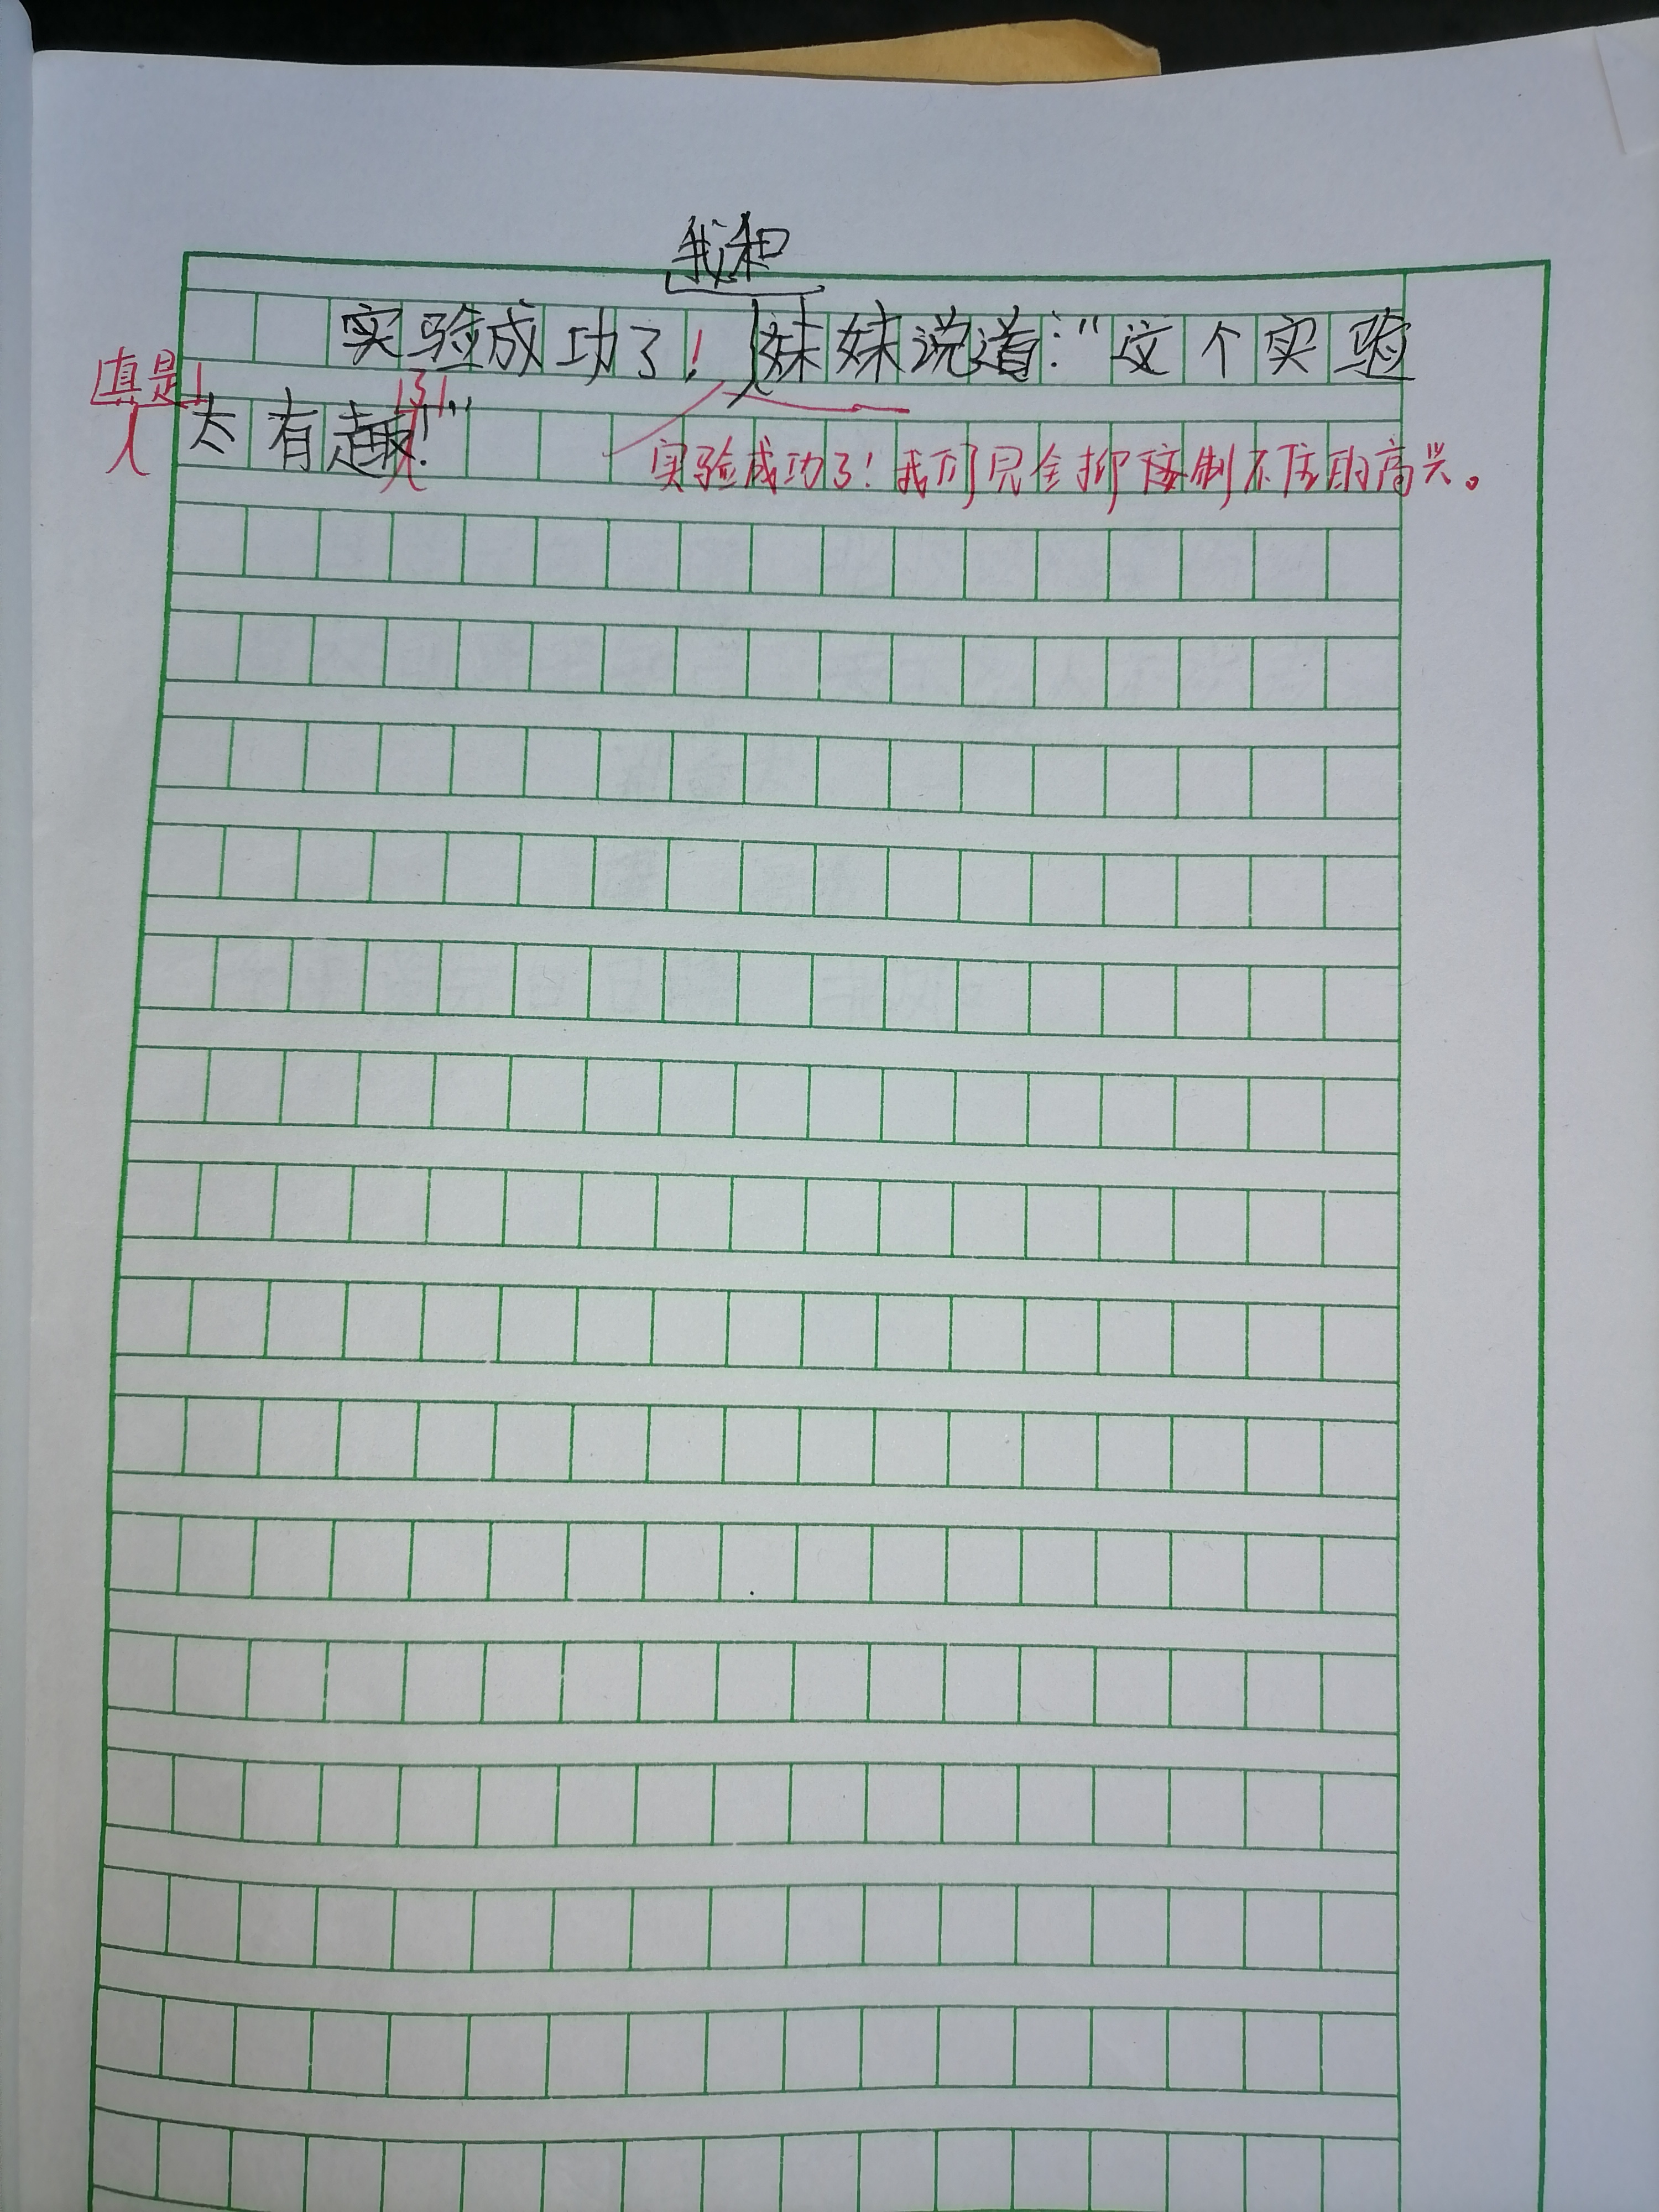 我和
实验成功了！妹妹说道："这个实验
真是
了
太有趣！"
实验成功了！我们完全抑制不住的高兴。